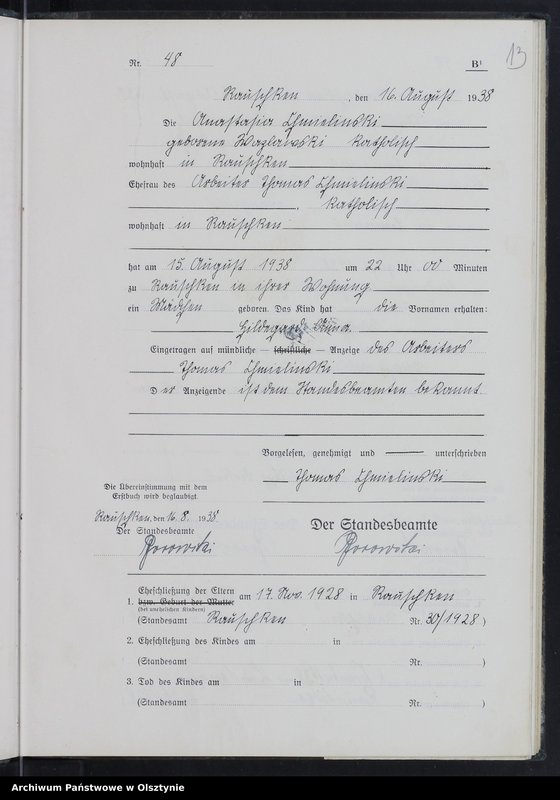 13
Nr. 48 B¹
Rauschken, den 16. August 1938
Die Anastasia Chmielinski
geborene Wazlawski katholisch
wohnhaft in Rauschken
Ehefrau des Arbeiter Thomas Chmielinski
, katholisch
wohnhaft in Rauschken
hat am 15. August 1938 um 22 Uhr 00 Minuten
zu Rauschken in ihrer Wohnung
ein Mädchen geboren. Das Kind hat die Vornamen erhalten:
Hildegard Anna.
Eingetragen auf mündliche — schriftliche — Anzeige des Arbeiters
Thomas Chmielinski
Der Anzeigende ist dem Standesbeamten bekannt.
Vorgelesen, genehmigt und unterschrieben
Thomas Chmielinski
Die Übereinstimmung mit dem
Erstbuch wird beglaubigt.
Rauschken, den 16. 8. 1938
Der Standesbeamte
Der Standesbeamte
1. Eheschließung der Eltern
bzw. Geburt der Mutter
(bei unehelichen Kindern)
am 17. Nov. 1928 in Rauschken
(Standesamt Rauschken Nr. 30/1928)
2. Eheschließung des Kindes am in
(Standesamt Nr. )
3. Tod des Kindes am in
(Standesamt Nr. )
Archiwum Państwowe w Olsztynie